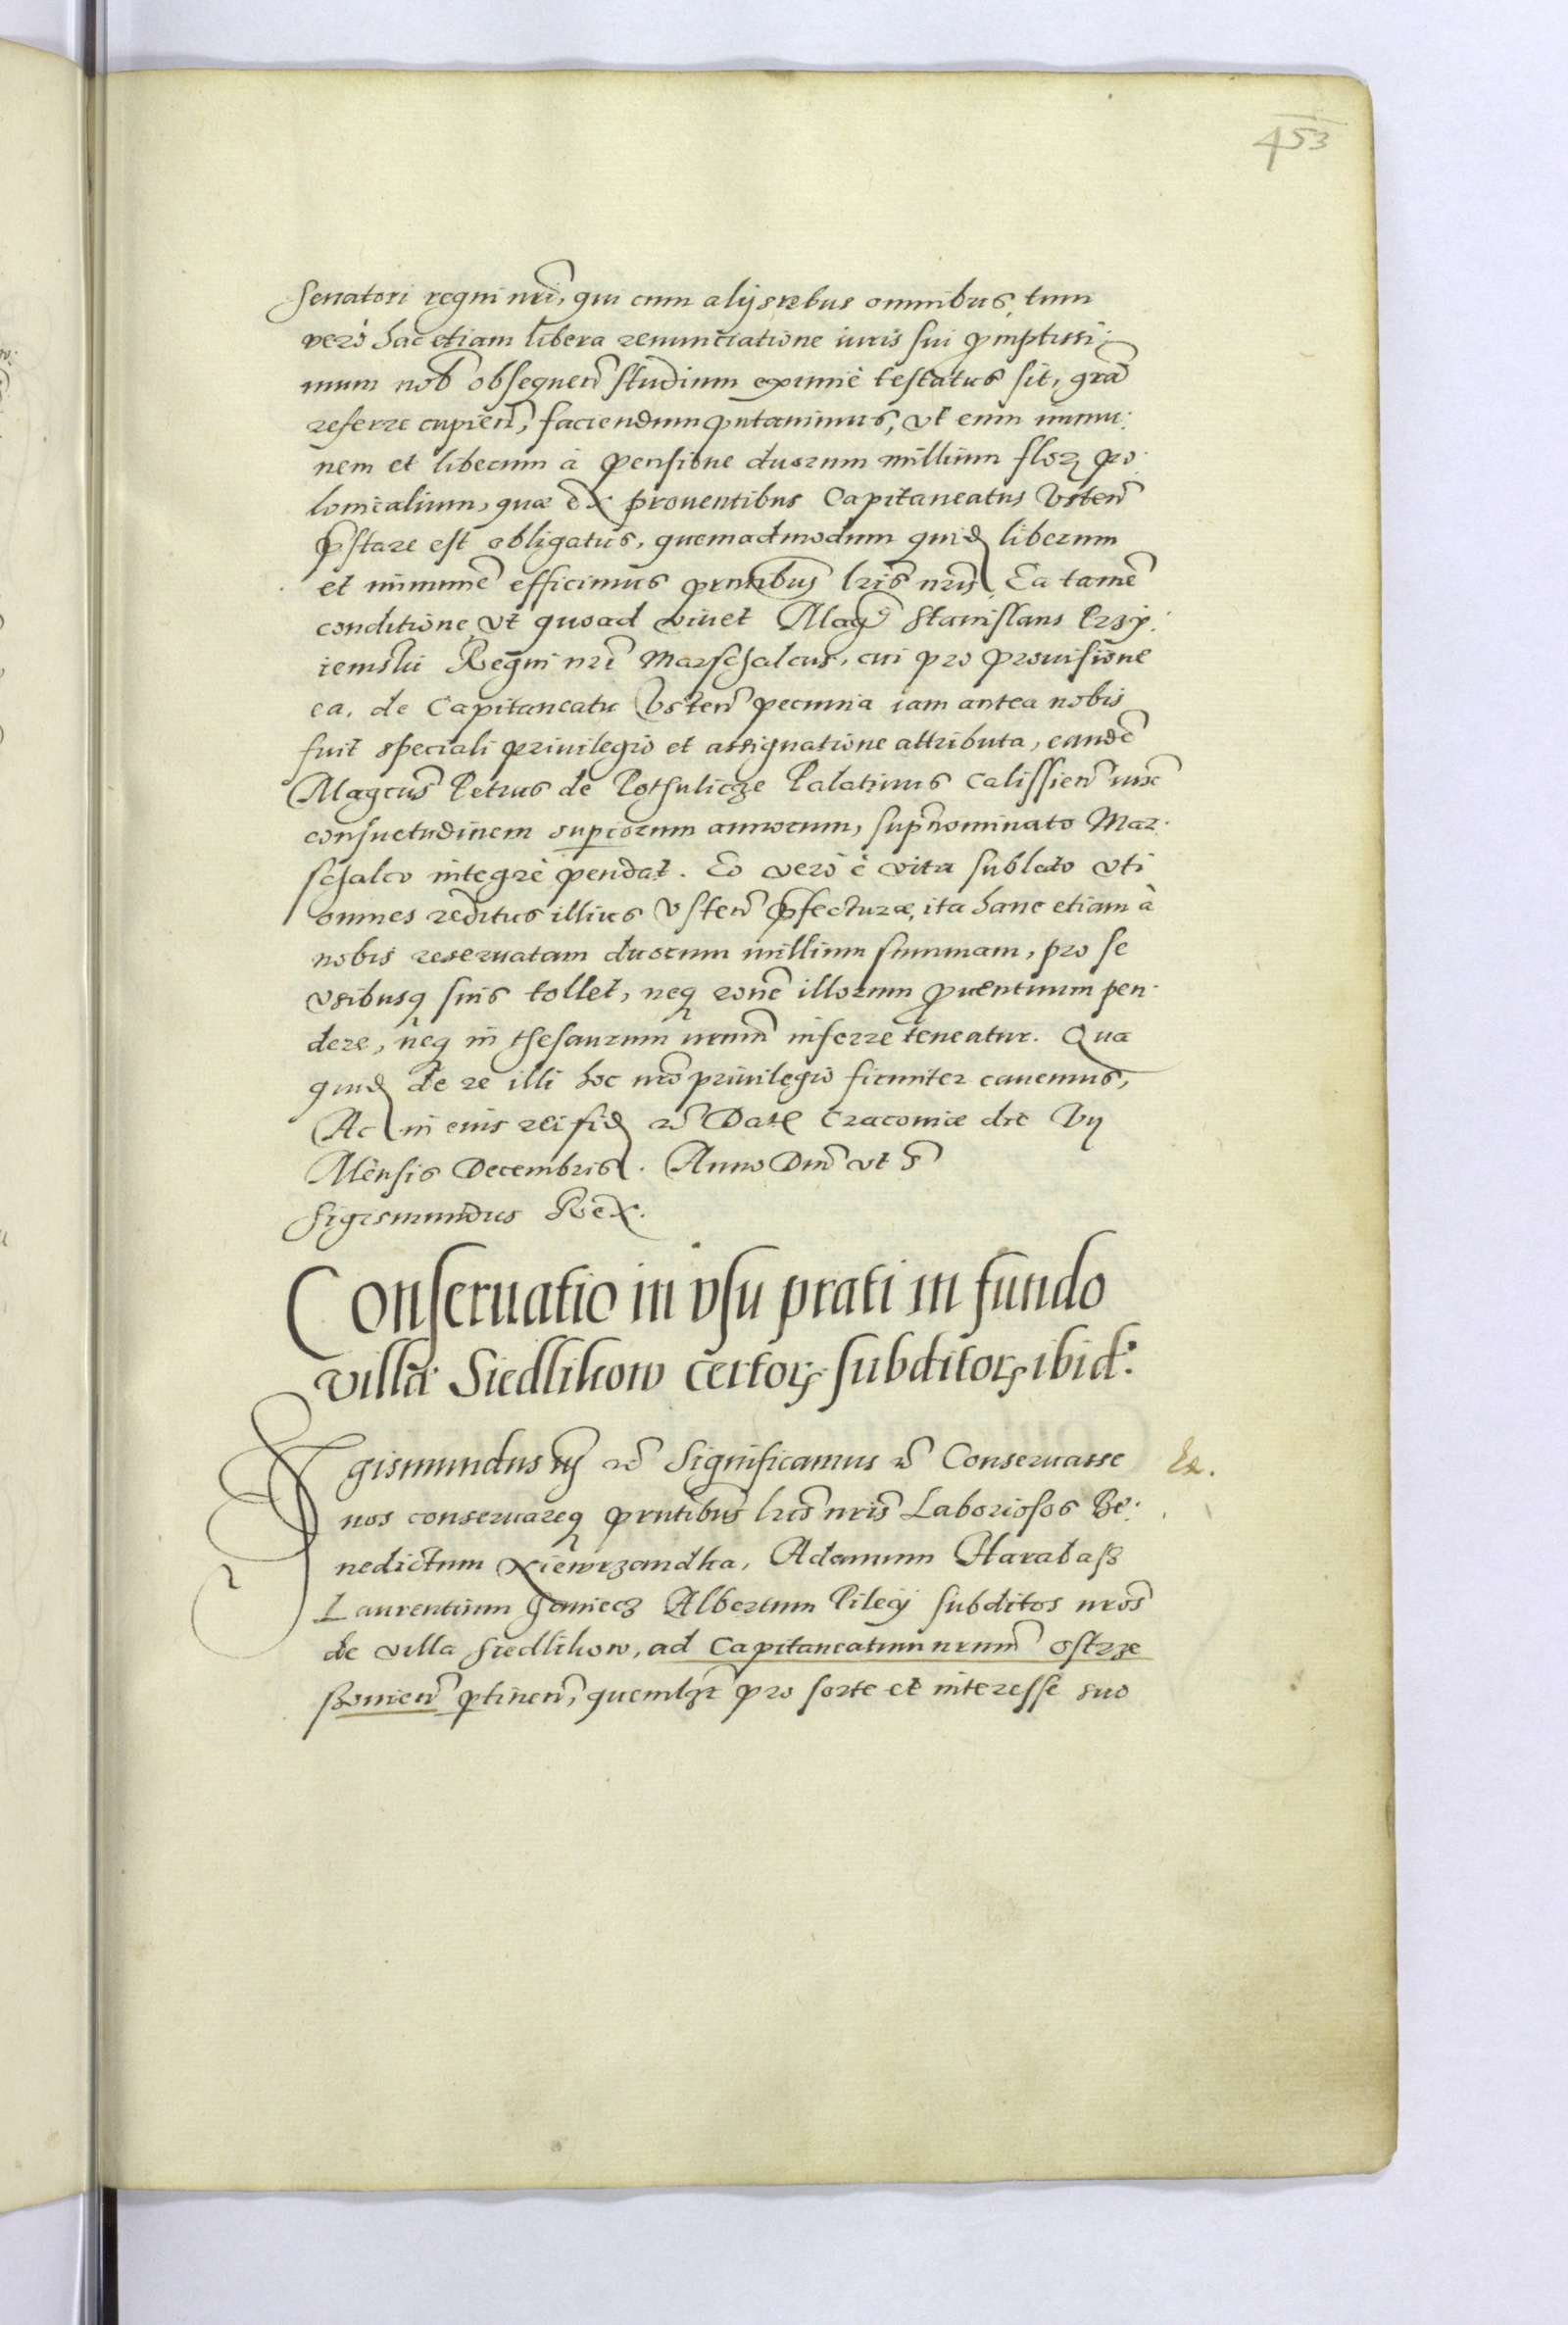 453
senatori regni nri, qui cum alijs rebus omnibus, tum
vero hac etiam libera renunciatione iuris sui promptissi:
mum nob obsequen studium eximie testatus sit, gram
referre cupien, faciendum putauimus, vt eum immu:
nem et liberum à pensione duorum millium flor po:
lonicalium, quæ ex prouentibus Capitaneatus Vsten
præstare est obligatus, quemadmodum quid liberum
et immune efficimus pntibus lris nris. Ea tame
conditione vt quoad viuet Mag Stanislaus Przy:
iemski Regni nri Marschalcus, cui pro prouisione
ea, de Capitaneatu Vsten pecunia iam antea nobis
fuit speciali priuilegio et assignatione attributa, eande
Magcus Petrus de Pothulicze Palatinus Calissien iux
consuetudinem superiorum annorum, supnominato Mar:
schalco integrè pendat. Eo verò è vita sublato vti
omnes reditus illius Vsten præfecturæ, ita hanc etiam à
nobis reseruatam duorum millium summam, pro se
vsibusq suis tollet, neq rone illorum prouentuum pen:
dere, neq in thesaurum nrum inferre teneatur. Qua
quid de re illi hoc nro priuilegio firmiter cauemus,
Ac in euis rei fid rc Dat Cracouiæ die Vij
Mensis Decembris. Anno Dni vt s
Sigismundus Rex.
Conseruatio in vsu prati in fundo
villæ Siedlikow certor subditor ibid:
Sigismundus iij rc Significamus rc Conseruasse Ex.
nos conseruareq pntibus lris nris Laboriosos Be:
nedictum Xiewrzandka, Adamum Harabasz
Laurentium Goniecz Albertum Pilecy subditos nros
de villa Siedlikow, ad Capitaneatum nrum ostrze
szouien ptinen, quemlzt pro sorte et interesse suo